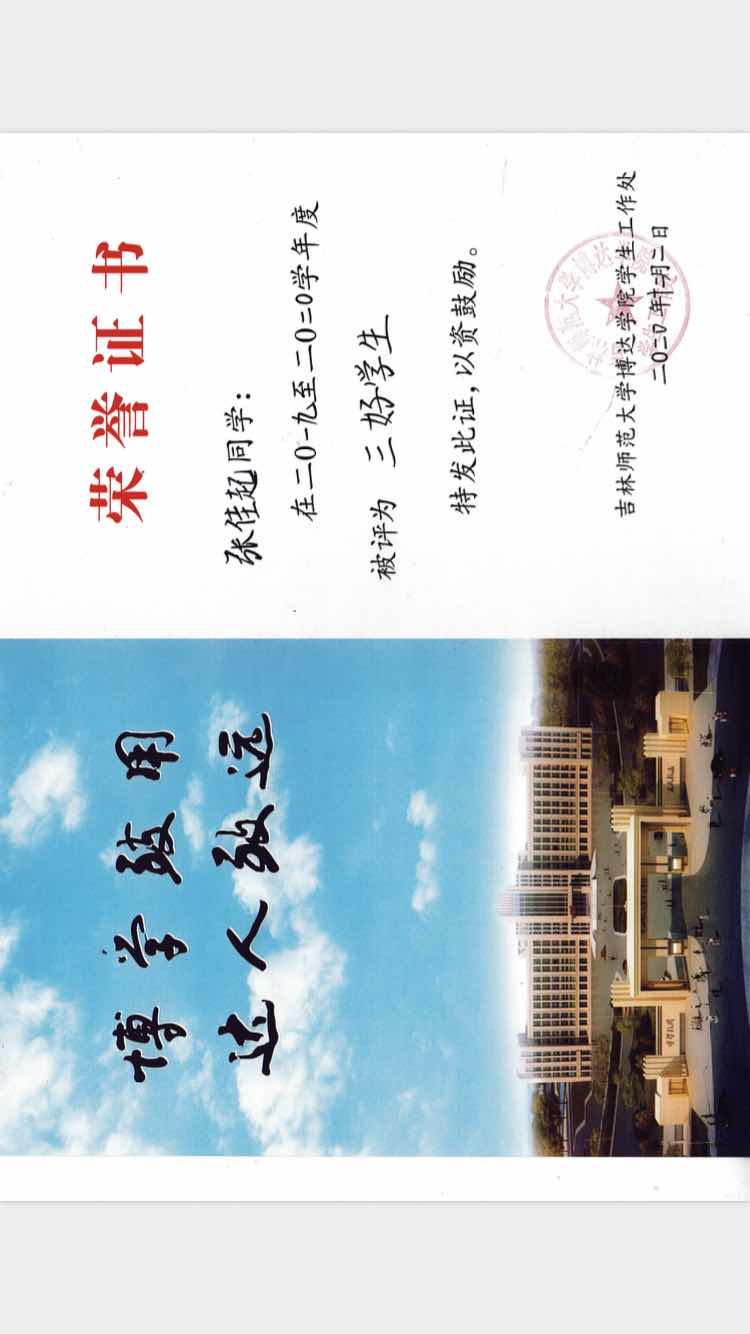 博学致用
达人致远
荣誉证书
张佳起同学：
在二0一九至二0二0学年度
被评为 三好学生
特发此证，以资鼓励。
吉林师范大学博达学院学生工作处
二0二0年十一月二日